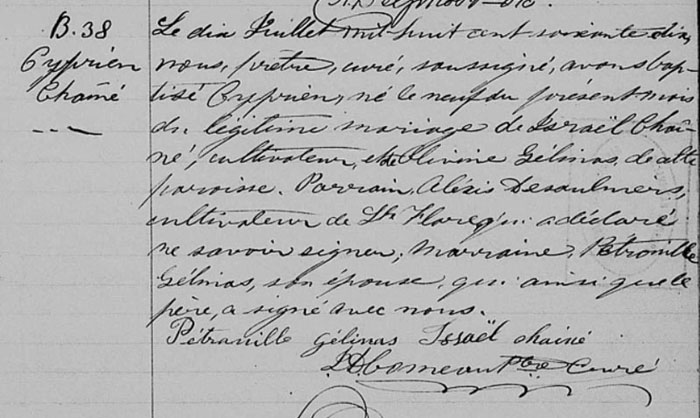 B. 38
Cyprien
Chaîné
Le dix Juillet mil-huit cent soixante dix,
nous, prêtre, curé, soussigné, avons bap-
tisé Cyprien, né le neuf du présent mois
du légitime mariage de Israël Chaî-
né, cultivateur, et de Olivine Gélinas, de cette
paroisse. Parrain, Alexis Desaulniers,
cultivateur de St. Flore, qui a déclaré
ne savoir signer, marraine, Pétronille
Gélinas, son épouse, qui ainsi que le
père, a signé avec nous.
Pétronille Gélinas Israël chainé
Comeau Ptre Curé